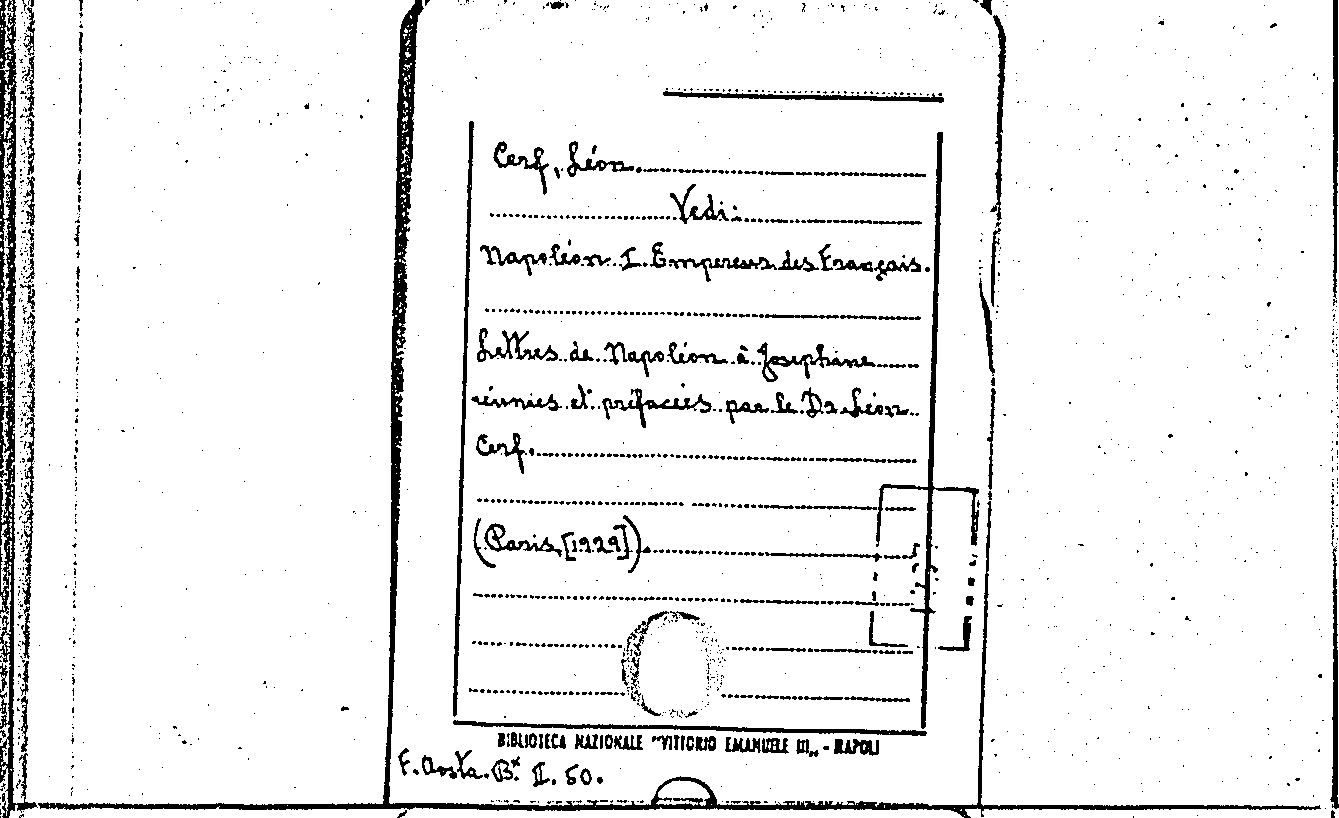 Cerf, Léon.
Vedi:
Napoléon I. Empereur des Français.
Lettres de Napoléon à Josephine
réunies et préfacées par le Dr. Léon
Cerf.
(Paris, [1929]).
BIBLIOTECA NAZIONALE "VITTORIO EMANUELE III„ - NAPOLI
F. Aosta. Bx II. 50.